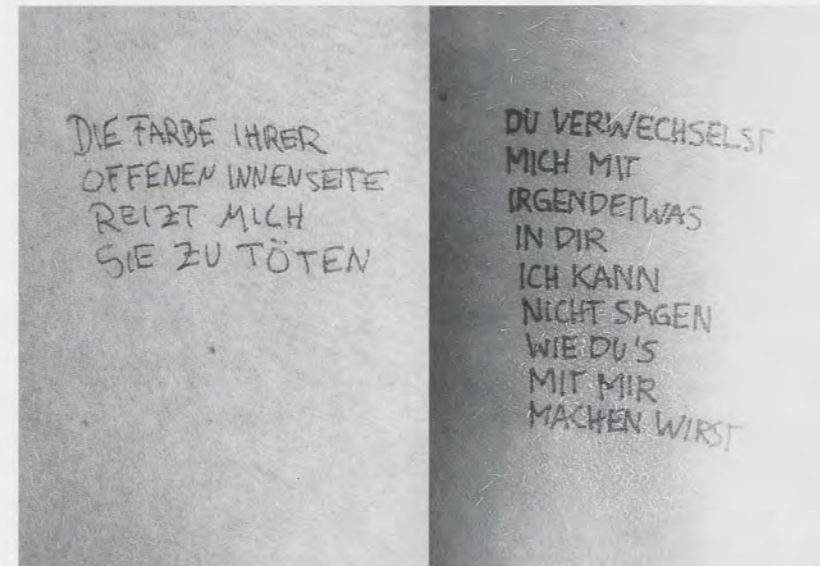 DIE FARBE IHRER
OFFENEN INNENSEITE
REIZT MICH
SIE ZU TÖTEN
DU VERWECHSELST
MICH MIT
IRGENDETWAS
IN DIR
ICH KANN
NICHT SAGEN
WIE DU'S
MIT MIR
MACHEN WIRST